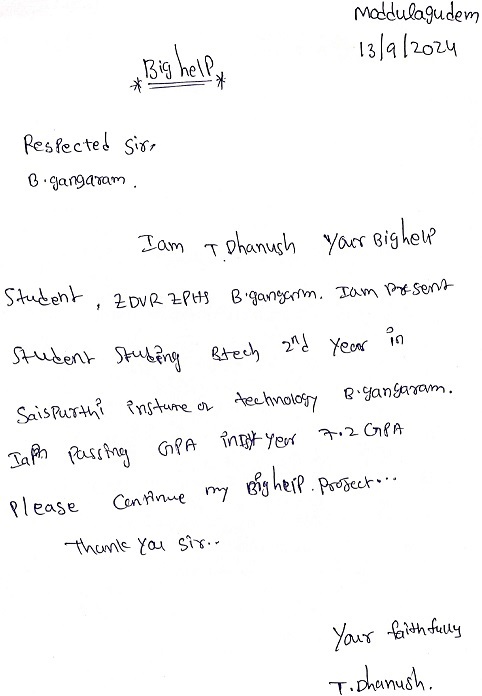 Moddulagudem
13/9/2024
* Big help *
Respected Sir,
B.gangaram.
Iam T.Dhanush Your Bighelp
Student, ZDVR ZPHS B.gangarm. Iam present
Student Studing Btech 2nd Year in
Saispurthi insture of technology B.gangaram.
Passing GPA in 1st year 7.2 GPA
Please Continue my Bighelp. Project...
Thank You Sir..
Your faithfully
T.Dhanush.